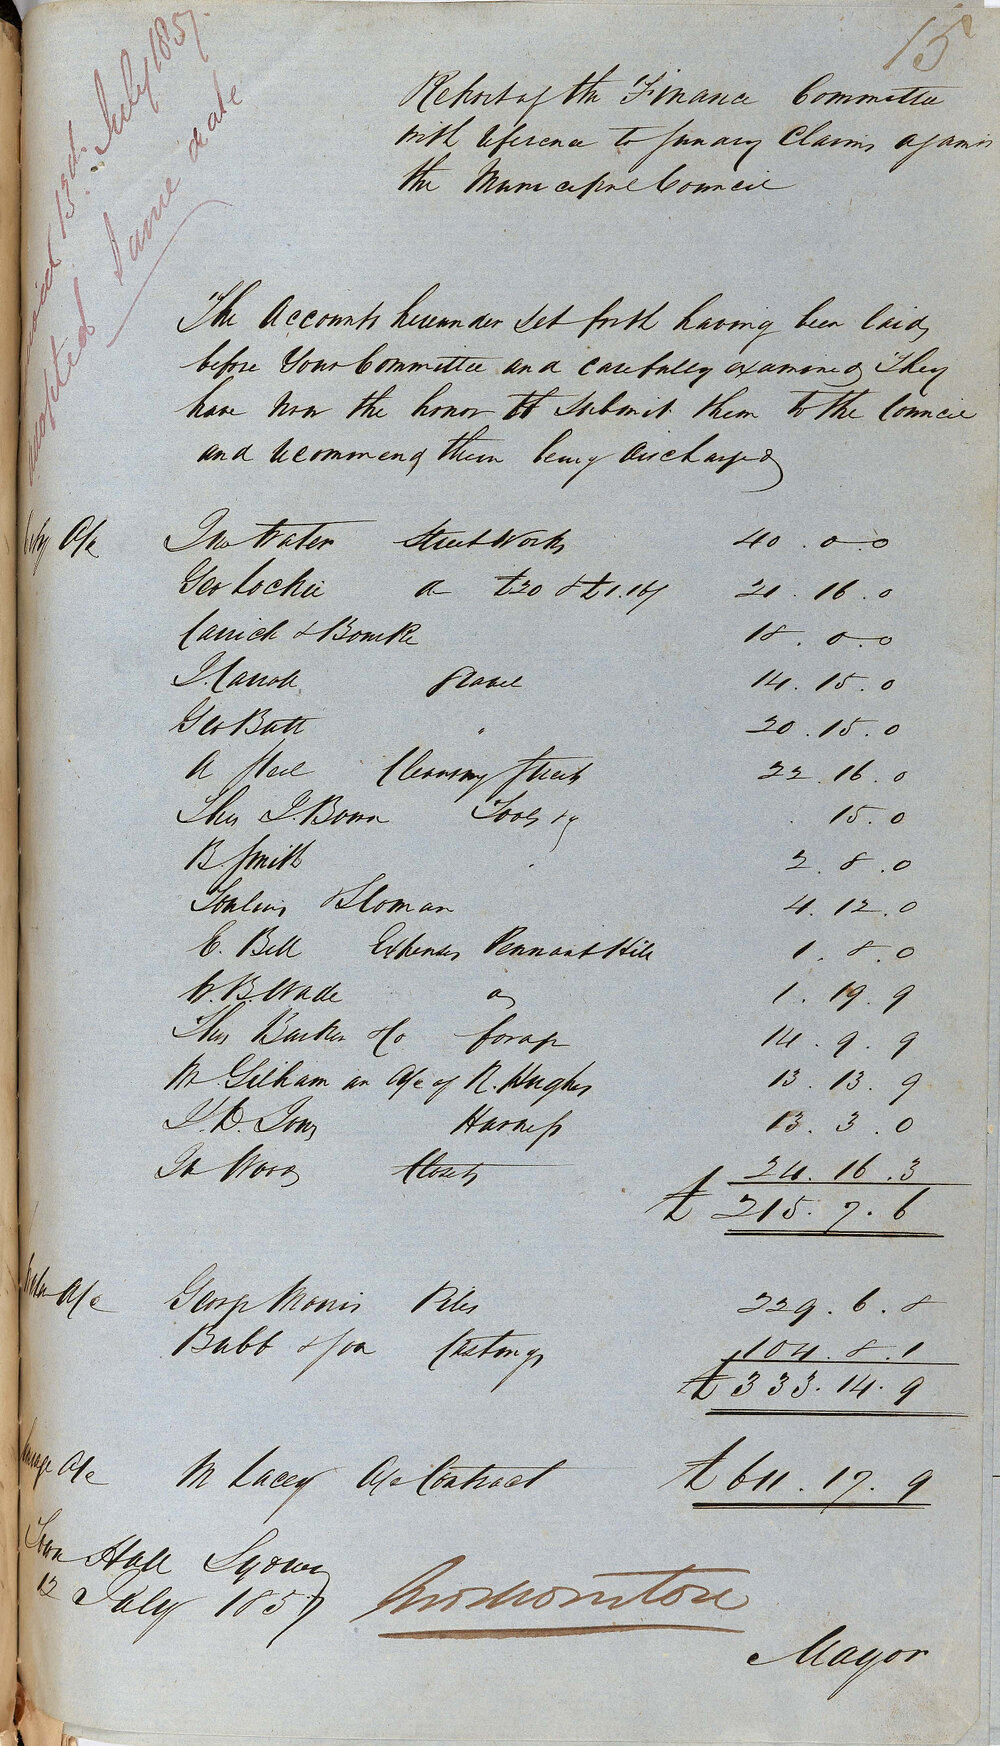 15
13th July 1857.
adopted same date
Report of the Finance Committee
with reference to sundry Claims against
the Municipal Council
The Accounts hereunder set forth having been laid
before Your Committee and carefully examined They
have now the honor to submit them to the Council
and recommend them being discharged
City A/c Jno Water Street Works 40 . 0 . 0
Geo Lockie do £20 & £1.16/ 21 . 16 . 0
Carrick & Bourke 18 . 0 . 0
J. Carroll Gravel 14 . 15 . 0
Geo Butt " 20 . 15 . 0
A Steel Cleansing Streets 22 . 16 . 0
Thos J. Bown Tools &c 15 . 0
B. Smith " 2 . 8 . 0
Sloman 4 . 12 . 0
E. Bell Expenses Pennant Hills 1 . 8 . 0
W. B. Wade do 1 . 19 . 9
Thos Barker & Co forage 14 . 9 . 9
M Gilham on A/c of R. Hughes 13 . 13 . 9
J. D. Jones Harness 13 . 3 . 0
Jn Wood Closets 24 . 16 . 3
£ 215 . 7 . 6
Water A/c George Morris Piles 229 . 6 . 8
Bubb & Son Castings 104 . 8 . 1
£ 333 . 14 . 9
Sewerage A/c M Lacey A/c Contract £ 611 . 17 . 9
Town Hall Sydney
12 July 1857
Mayor